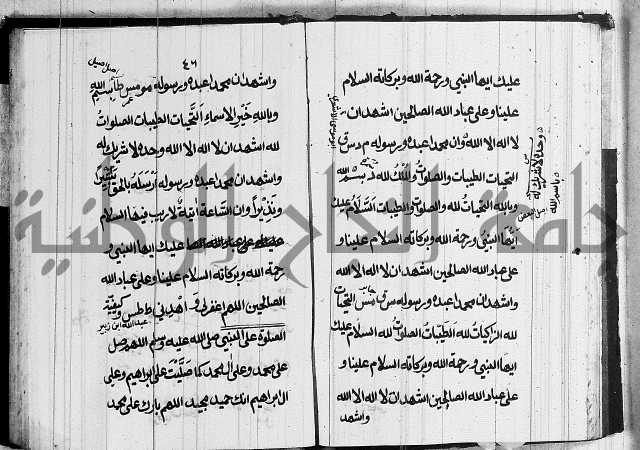 عليك ايها النبي ورحمة الله وبركاته السلام
علينا وعلى عباد الله الصالحين اشهد ان
لا اله الا الله وان محمدا عبده ورسوله م د س ق
التحيات الطيبات والصلوات والملك لله د بسم الله
وبالله التحيات لله والصلوات والطيبات السلام عليك
ايها النبي ورحمة الله وبركاته السلام علينا و
على عباد الله الصالحين اشهد ان لا اله الا الله
واشهد ان محمدا عبده ورسوله س ق مس التحيات
لله الزاكيات لله الطيبات الصلوات لله السلام عليك
ايها النبي ورحمة الله وبركاته السلام علينا و
على عباد الله الصالحين اشهد ان لا اله الا الله
واشهد
وحده لا شريك له
باسم الله
٤٦
واشهد ان محمدا عبده ورسوله مو مس طا بسم الله
وبالله خير الاسماء التحيات الطيبات الصلوات
لله اشهد ان لا اله الا الله وحده لا شريك له
واشهد ان محمدا عبده ورسوله ارسله بالحق بشيرا
ونذيرا وان الساعة اتية لا ريب فيها السلام
عليك ايها النبي و
رحمة الله وبركاته السلام علينا وعلى عباد الله
الصالحين اللهم اغفر لي واهدني ط طس وكيفية
عبد الله ابن زبير
الصلوة على النبي صلى الله عليه وسلم اللهم صل
على محمد وعلى ال محمد كما صليت على ابراهيم وعلى
ال ابراهيم انك حميد مجيد اللهم بارك على محمد
جامعة النجاح الوطنية